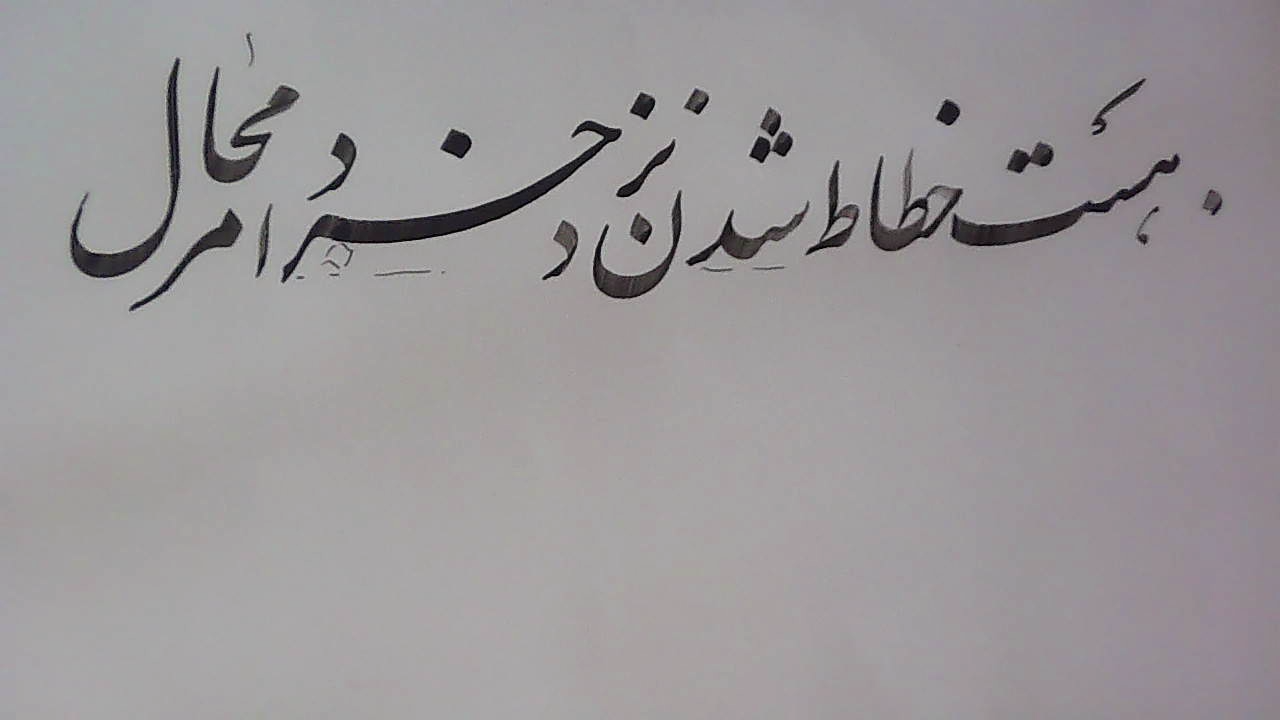 هست خطاط شدن نزد خرد امر محال